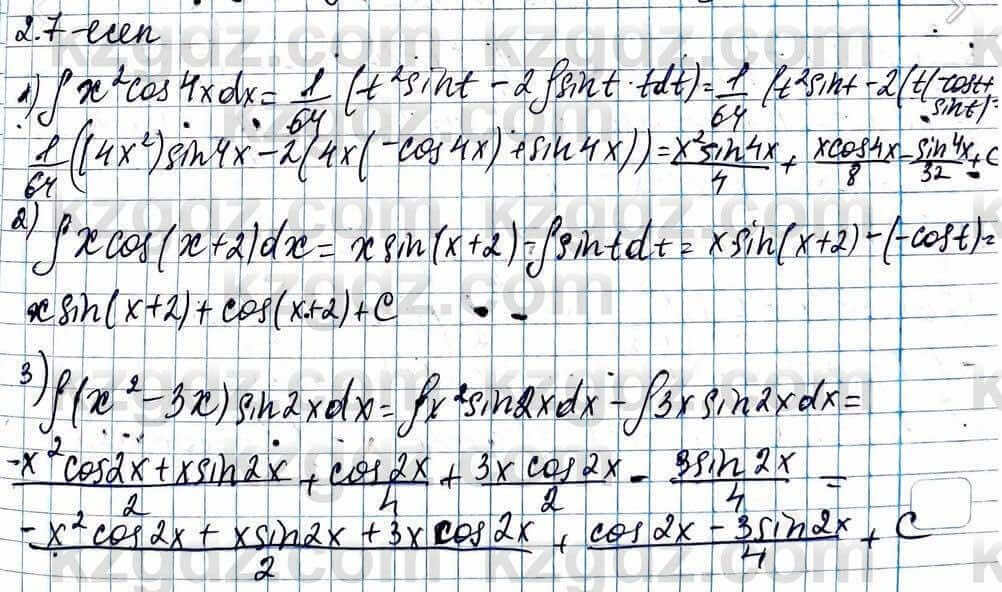 2.7-есеп
1) ∫x²cos4xdx = 1/64 (t²sint - 2∫sint·tdt) = 1/64 (t²sint - 2(t(-cost + sint) =
1/64 ((4x²)sin4x - 2(4x(-cos4x) + sin4x)) = x²sin4x/4 + xcos4x/8 - sin4x/32 + C
2) ∫xcos(x+2)dx = xsin(x+2) - ∫sintdt = xsin(x+2) - (-cost) =
xsin(x+2) + cos(x+2) + C
3) ∫(x² - 3x)sin2xdx = ∫x²sin2xdx - ∫3xsin2xdx =
-x²cos2x + xsin2x/2 + cos2x/4 + 3xcos2x/2 - 3sin2x/4 =
-x²cos2x + xsin2x + 3xcos2x/2 + cos2x - 3sin2x/4 + C
kzgdz.com